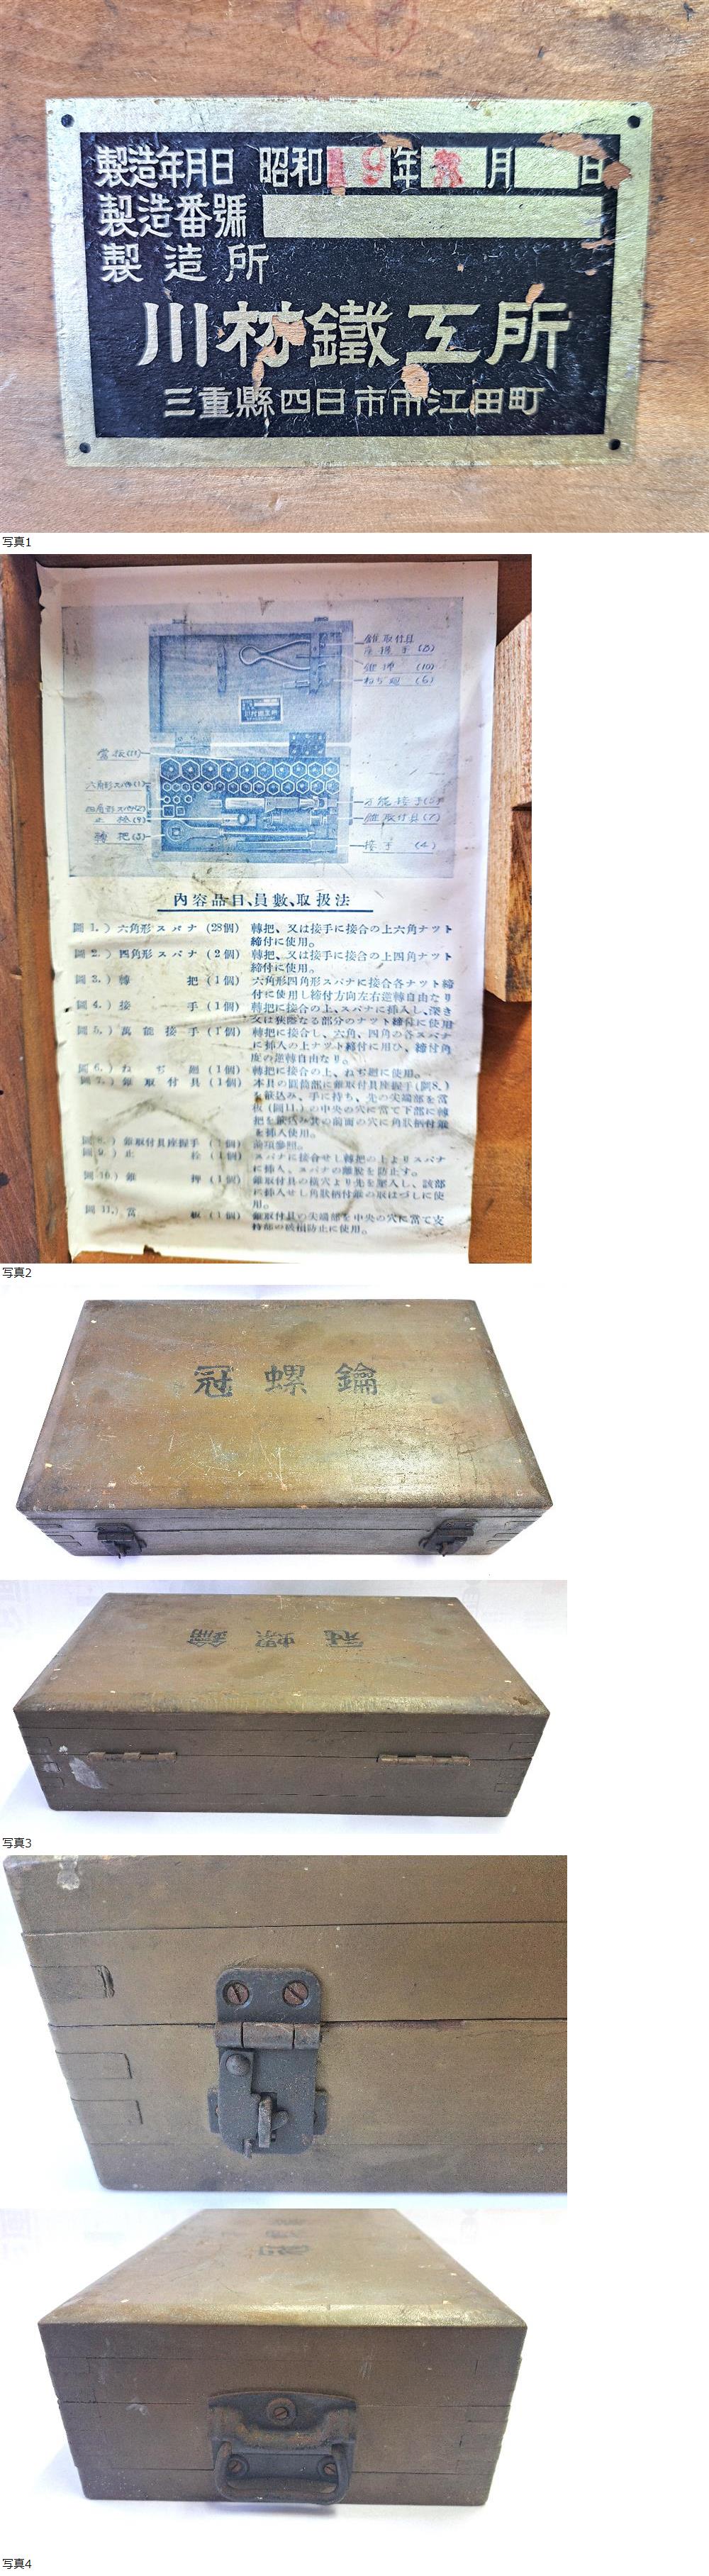 製造年月日 昭和19年 月 日
製造番號
製造所
川村鐵工所
三重縣四日市市江田町
写真1
錐取付具
座握手 (8)
錐押 (10)
ねぢ廻 (6)
川村鐵工所
當板(11)
六角形スパナ(1)
四角形スパナ(2)
止栓(9)
轉把(3)
万能接手(5)
錐取付具(7)
接手 (4)
內容品目、員數、取扱法
圖1.) 六角形スパナ (28個) 轉把、又は接手に接合の上六角ナツト
締付に使用。
圖2.) 四角形スパナ (2個) 轉把、又は接手に接合の上四角ナツト
締付に使用。
圖3.) 轉把 (1個) 六角形四角形スパナに接合各ナツト締
付に使用し締付方向左右逆轉自由なり
圖4.) 接手 (1個) 轉把に接合の上、スパナに挿入し、深き
又は狹隘なる部分のナツト締付に使用
圖5.) 萬能接手 (1個) 轉把に接合し、六角、四角の各スパナ
に挿入の上ナツト締付に用ひ、締付角
度の逆轉自由なり。
圖6.) ねぢ廻 (1個) 轉把に接合の上、ねぢ廻に使用。
圖7.) 錐取付具 (1個) 本具の圓筒部に錐取付具座握手(圖8.)
を嵌込み、手に持ち、先の尖端部を當
板(圖11.)の中央の穴に當て下部に轉
把を嵌込み其の前面の穴に角狀柄付錐
を挿入使用。
圖8.) 錐取付具座握手 (1個) 前項參照。
圖9.) 止栓 (1個) スパナに接合せし轉把の上よりスパナ
に挿入、スパナの離脫を防止す。
圖10.) 錐押 (1個) 錐取付具の橫穴より先を挿入し、該部
に挿入せし角狀柄付錐の取はづしに使
用。
圖11.) 當板 (1個) 錐取付具の尖端部を中央の穴に當て支
持部の破損防止に使用。
写真2
冠螺鑰
冠螺鑰
写真3
写真4